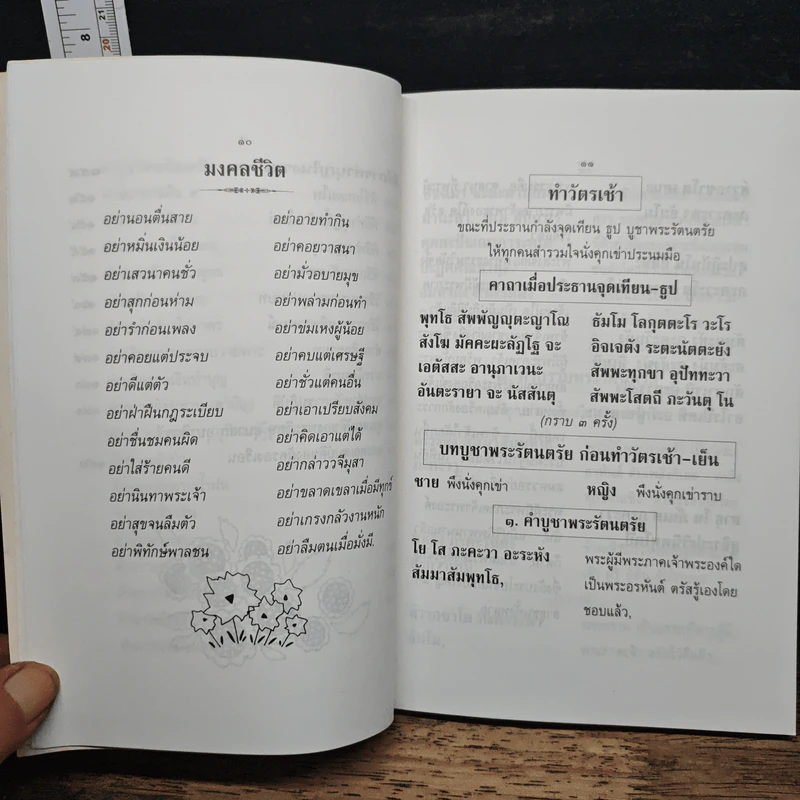 8
20
21
๑๐
มงคลชีวิต
อย่านอนตื่นสาย อย่าอายทำกิน
อย่าหมิ่นเงินน้อย อย่าคอยวาสนา
อย่าเสวนาคนชั่ว อย่ามั่วอบายมุข
อย่าสุกก่อนห่าม อย่าพล่ามก่อนทำ
อย่ารำก่อนเพลง อย่าข่มเหงผู้น้อย
อย่าคอยแต่ประจบ อย่าคบแต่เศรษฐี
อย่าดีแต่ตัว อย่าชั่วแต่คนอื่น
อย่าฝ่าฝืนกฎระเบียบ อย่าเอาเปรียบสังคม
อย่าชื่นชมคนผิด อย่าคิดเอาแต่ได้
อย่าใส่ร้ายคนดี อย่ากล่าววจีมุสา
อย่านินทาพระเจ้า อย่าขลาดเขลาเมื่อมีทุกข์
อย่าสุขจนลืมตัว อย่าเกรงกลัวงานหนัก
อย่าพิทักษ์พาลชน อย่าลืมตนเมื่อมั่งมี.
๑๑
ทำวัตรเช้า
ขณะที่ประธานกำลังจุดเทียน ธูป บูชาพระรัตนตรัย
ให้ทุกคนสำรวมใจนั่งคุกเข่าประนมมือ
คาถาเมื่อประธานจุดเทียน-ธูป
พุทโธ สัพพัญญุตะญาโณ ธัมโม โลกุตตะโร วะโร
สังโฆ มัคคะผะลัฏโฐ จะ อิจเจตัง ระตะนัตตะยัง
เอตัสสะ อานุภาเวนะ สัพพะทุกขา อุปัททะวา
อันตะรายา จะ นัสสันตุ สัพพะโสตถี ภะวันตุ โน
(กราบ ๓ ครั้ง)
บทบูชาพระรัตนตรัย ก่อนทำวัตรเช้า-เย็น
ชาย พึงนั่งคุกเข่า หญิง พึงนั่งคุกเข่าราบ
๑. คำบูชาพระรัตนตรัย
โย โส ภะคะวา อะระหัง พระผู้มีพระภาคเจ้าพระองค์ใด
สัมมาสัมพุทโธ, เป็นพระอรหันต์ ตรัสรู้เองโดย
ชอบแล้ว,